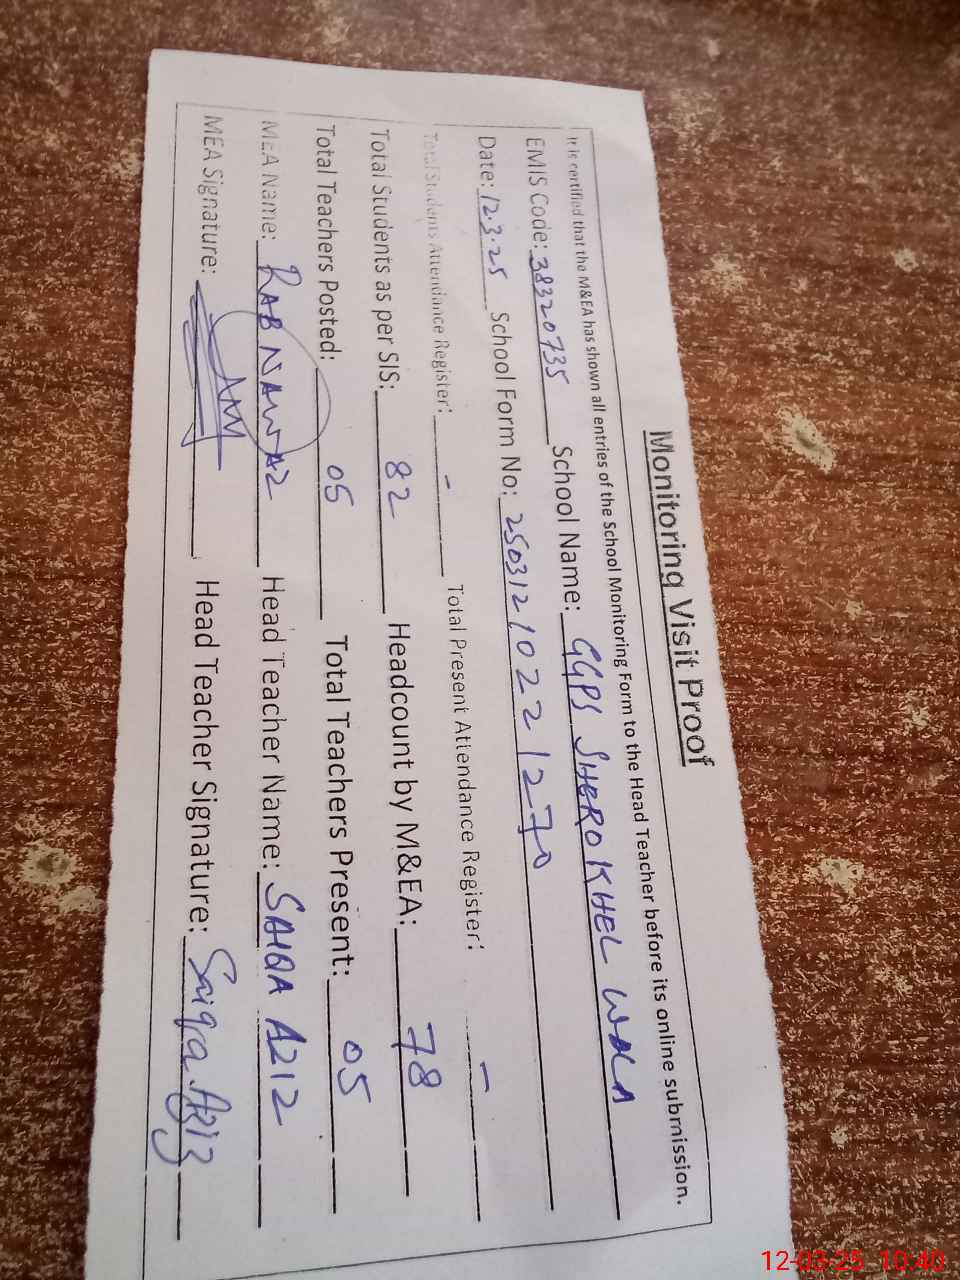 Monitoring Visit Proof
It is certified that the M&EA has shown all entries of the School Monitoring Form to the Head Teacher before its online submission.
EMIS Code: 38320735 School Name: GGPS SHERO KHEL WALA
Date: 12.3.25 School Form No: 25031210221270
Total Students Attendance Register: - Total Present Attendance Register: -
Total Students as per SIS: 82 Headcount by M&EA: 78
Total Teachers Posted: 05 Total Teachers Present: 05
MEA Name: RAB NAWAZ Head Teacher Name: SAIQA AZIZ
MEA Signature: Head Teacher Signature: Saiqa Aziz
12-03-25 10:40